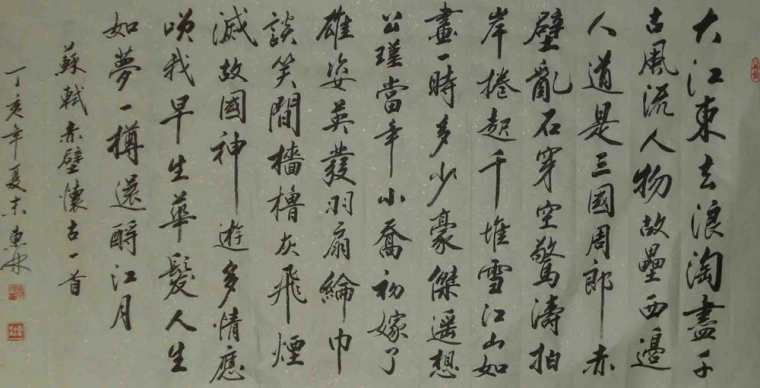 大江東去浪淘盡千
古風流人物故壘西邊
人道是三國周郎赤
壁亂石穿空驚濤拍
岸捲起千堆雪江山如
畫一時多少豪傑遥想
公瑾當年小喬初嫁了
雄姿英發羽扇綸巾
談笑間檣櫓灰飛煙
滅故國神遊多情應
笑我早生華髮人生
如夢一樽還酹江月
蘇軾赤壁懷古一首
丁亥年夏末